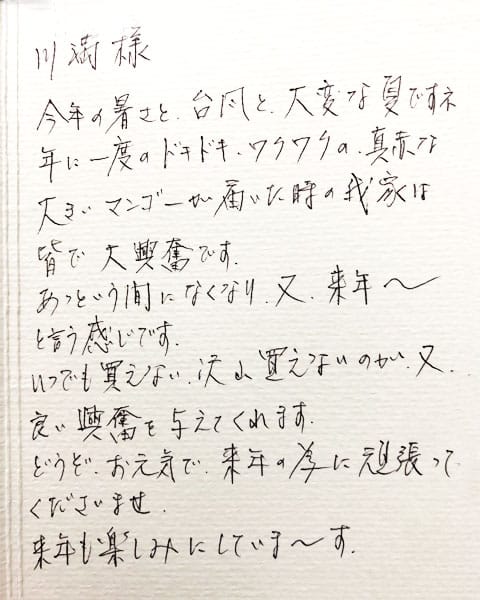 川満様
今年の暑さと、台風と、大変な夏ですネ
年に一度のドキドキ、ワクワクの、真赤な
大きいマンゴーが届いた時の我家は
皆で大興奮です.
あっという間になくなり、又、来年〜
と言う感じです.
いつでも買えない、沢山買えないのが、又、
良い興奮を与えてくれます.
どうぞ、お元気で、来年の為に頑張って
くださいませ.
来年も楽しみにしていま〜す.